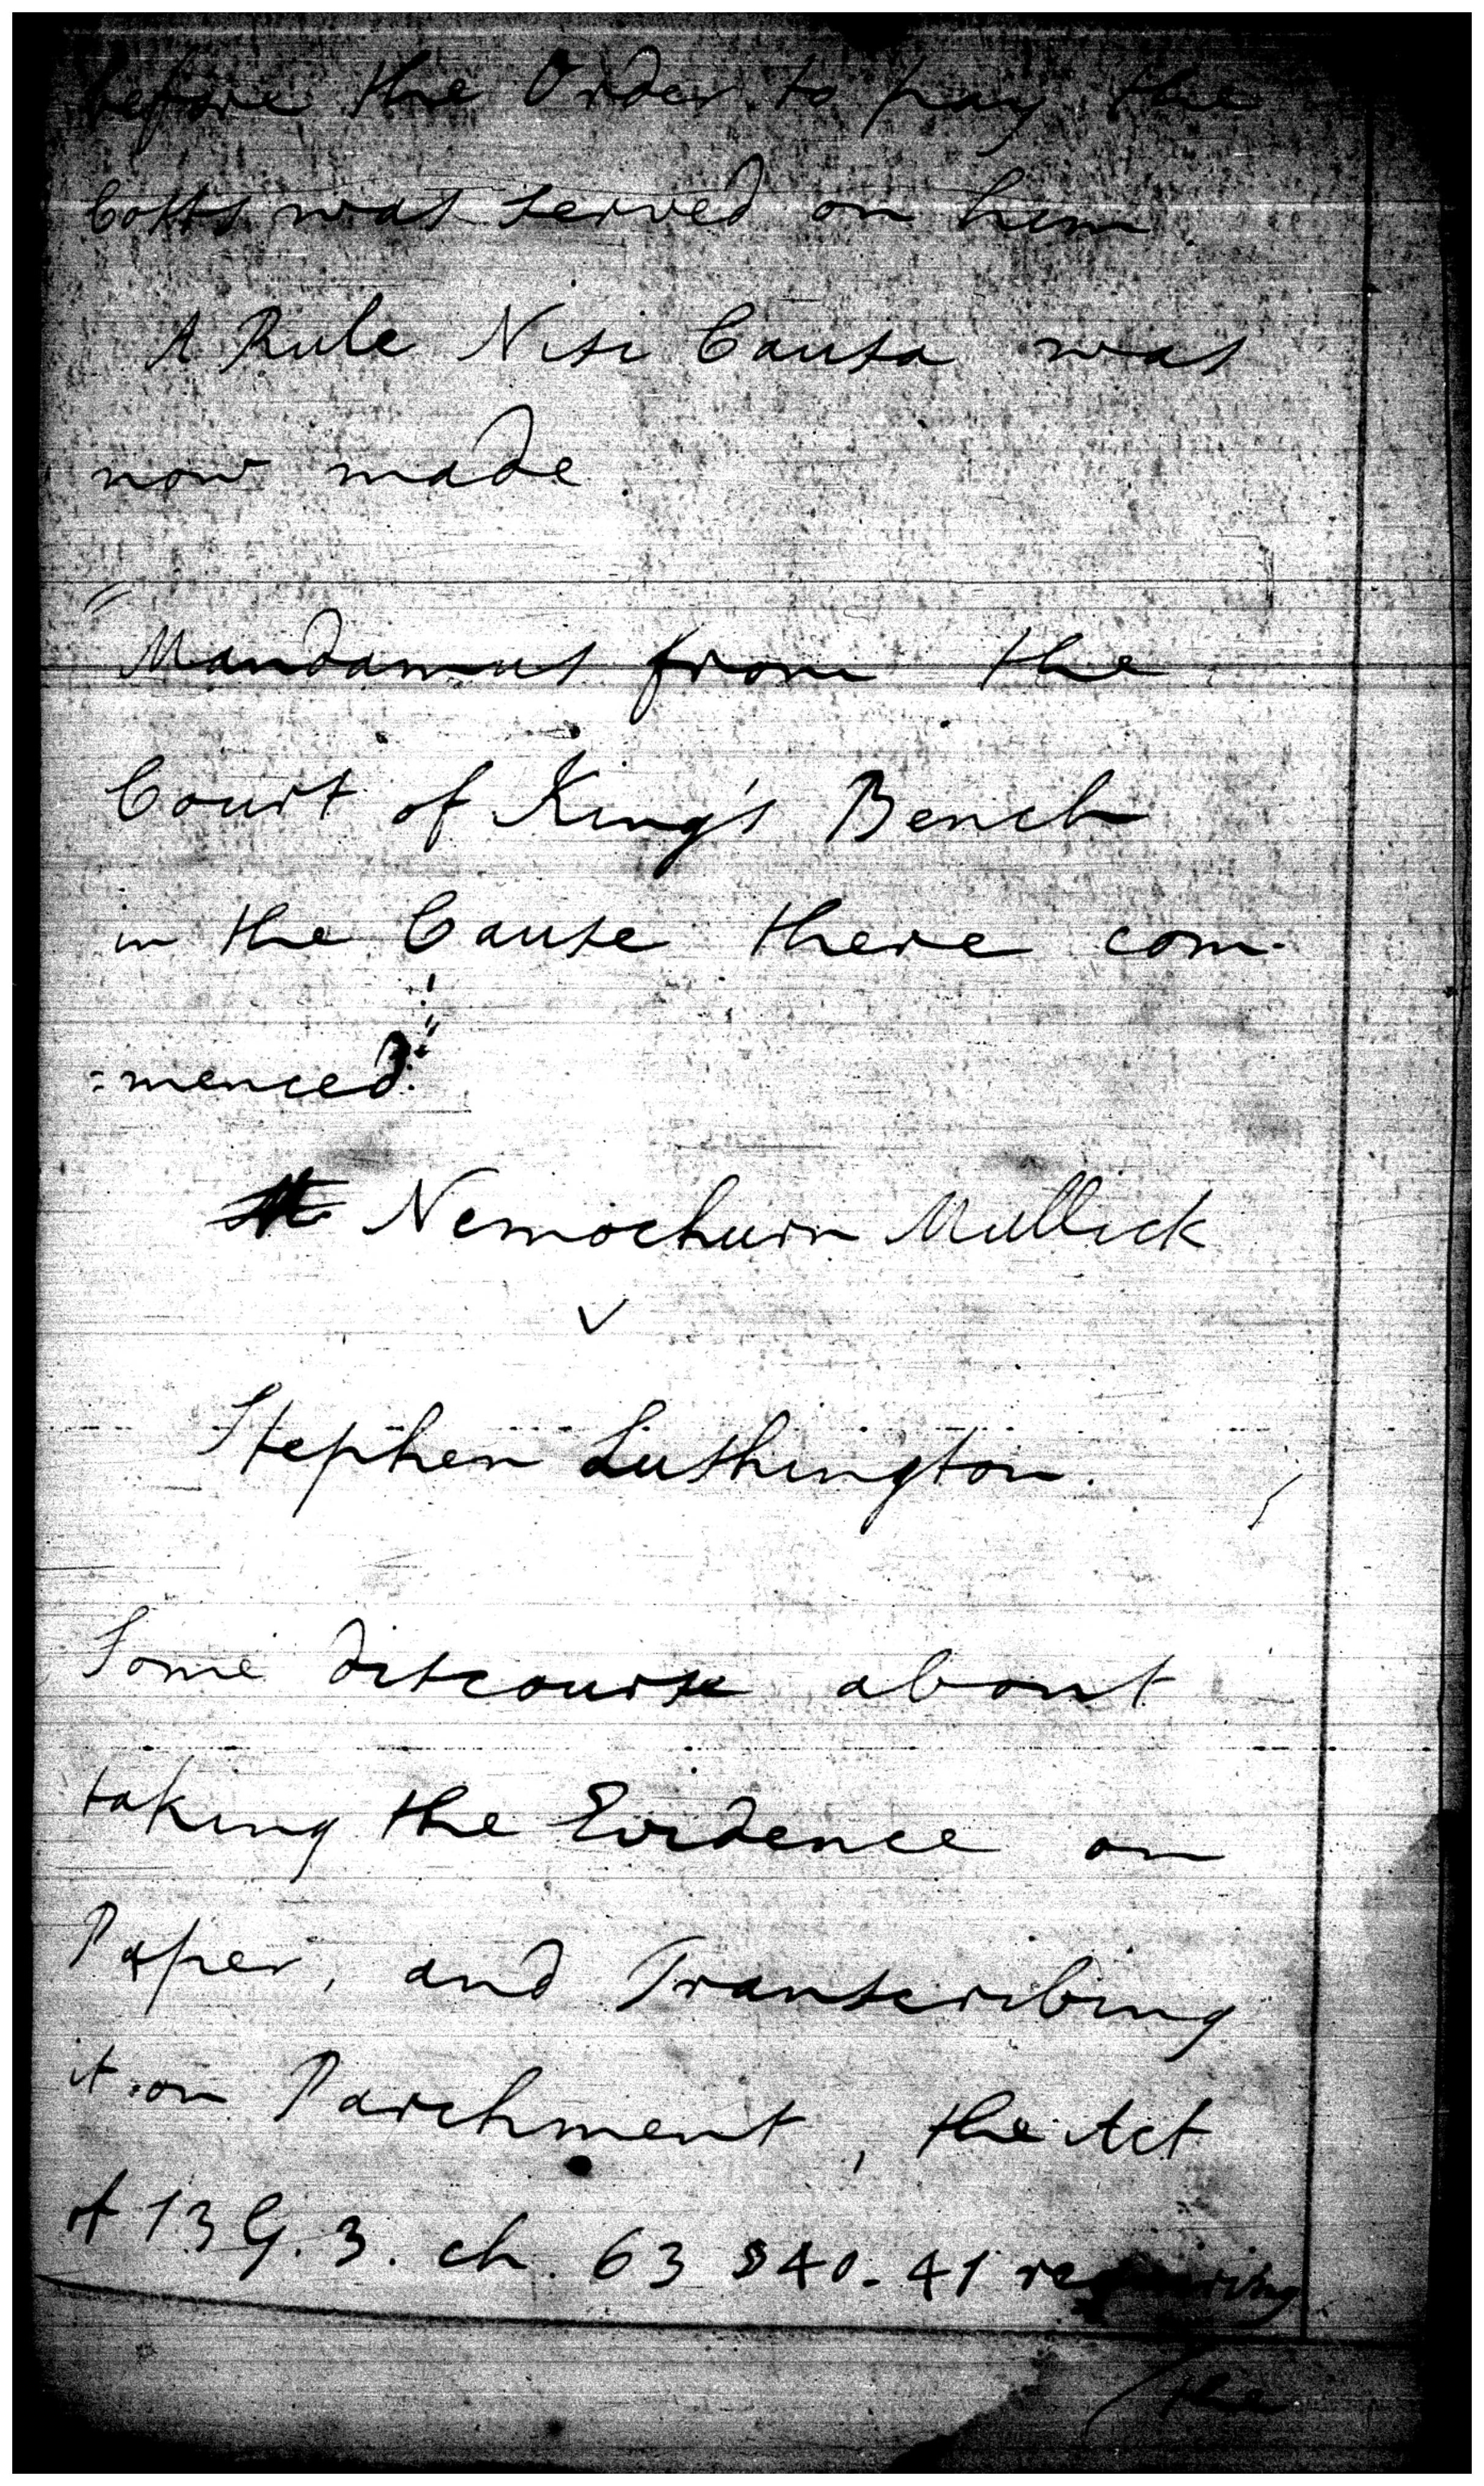 before the Order to pay the
Costs was served on him
A Rule Nisi Causa was
now made
"Mandamus from the
Court of King's Bench
in the Cause there com-
=menced."
Nemochurn Mullick
v
Stephen Lushington.
Some discourse about
taking the Evidence on
Paper, and Transcribing
it on Parchment, the Act
of 13 G. 3. ch. 63 S 40. 41 requiring
the